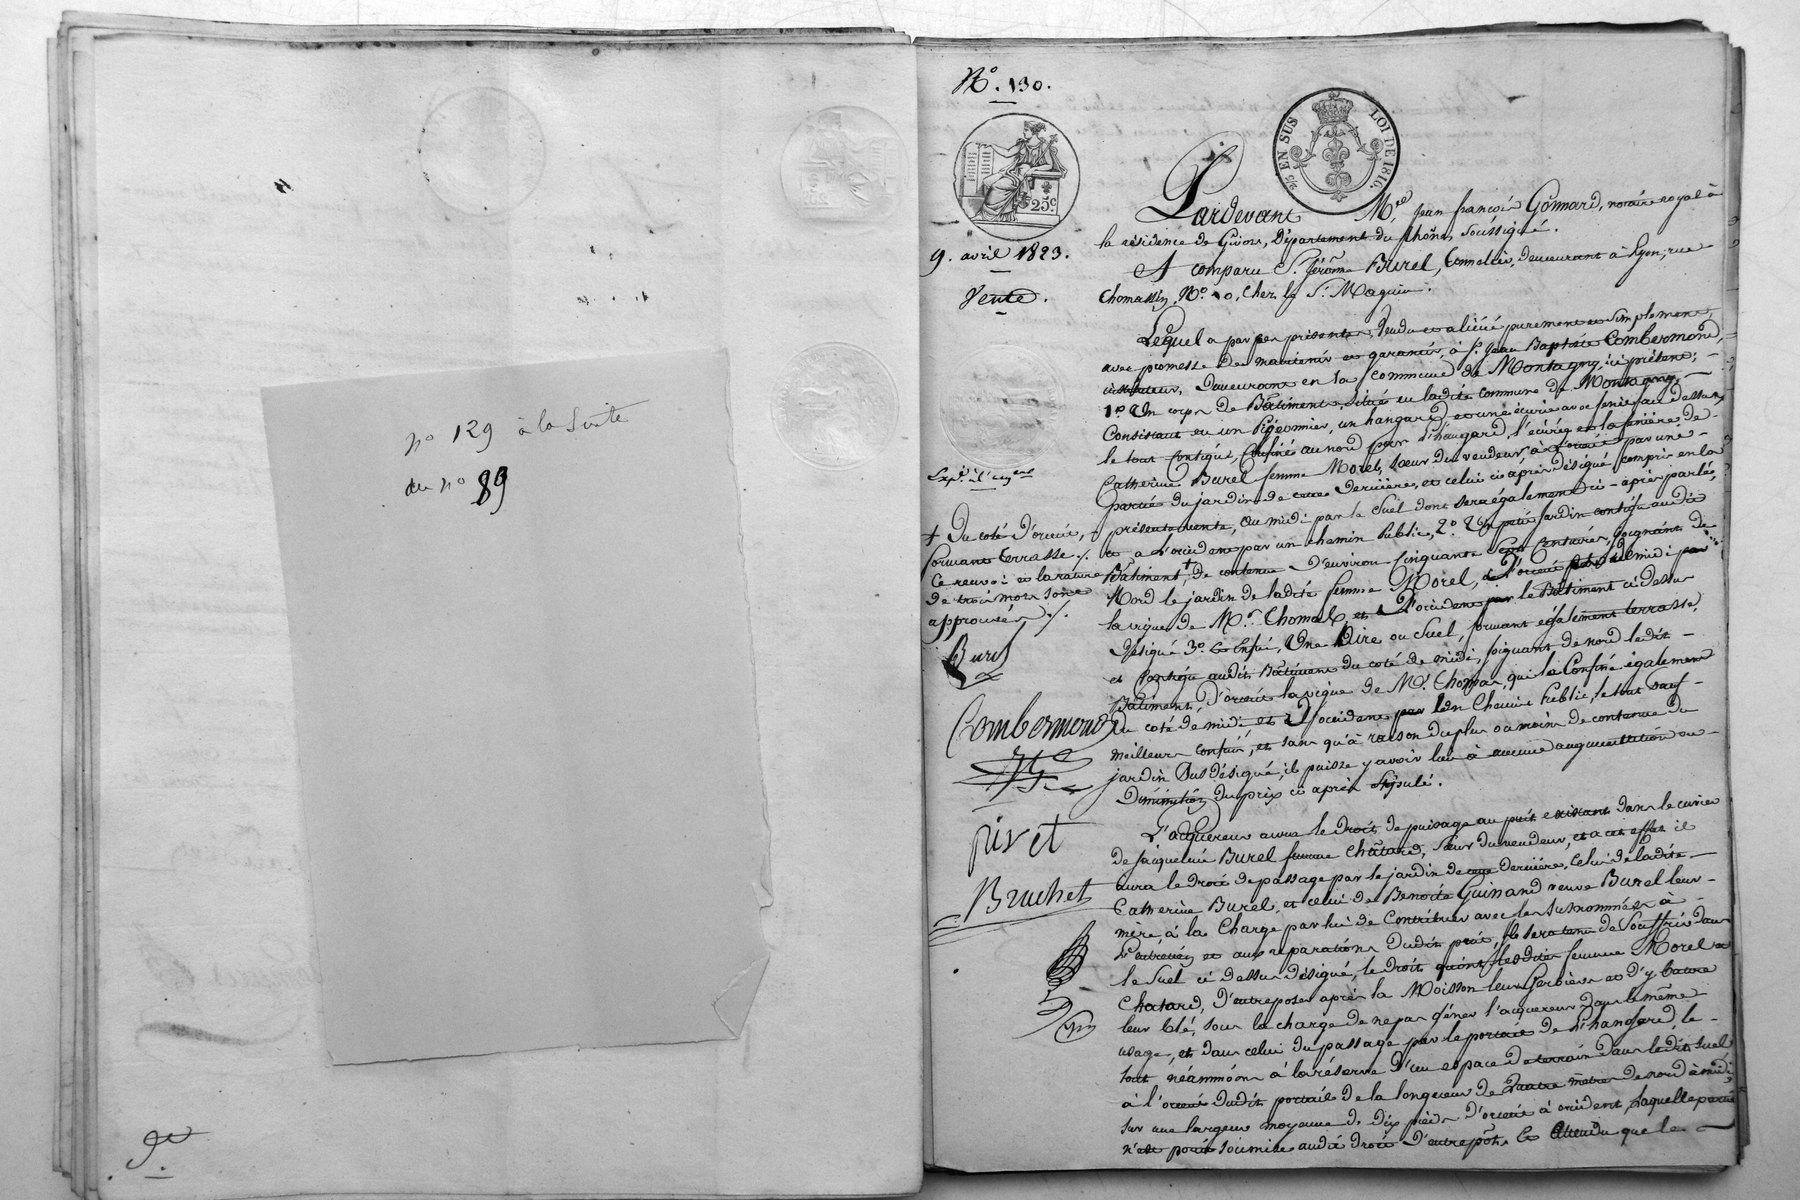 n° 129 à la Suite
du n° 89
N.° 130.
25 c
EN SUS LOI DE 1816.
9. avril 1823.
Vente.
Pardevant M.tre Jean françois Gonnard, notaire royal à
la résidence de Givors, Département du Rhône, soussigné.
A comparu S.r Jérôme Burel, tonnelier, demeurant à Lyon, rue
Thomassin, N.° 10, chez le S.r Maguin.
Lequel a par ces présentes, Vendu et aliéné purement et simplement,
avec promesse de maintenir et garantir, à S.r Jean Baptiste Combermond,
instituteur, demeurant en la commune de Montagny, ici présent;
1.° Un corps de Bâtiment, situé en ladite commune de Montagny,
Consistant en un Pigeonnier, un hangard et une écurie avec fenière au dessus,
le tout contigu, Confiné au nord par l'hangard, l'écurie et la fenière de
Catherine Burel femme Morel, sœur du vendeur, à l'orient par une
partie du jardin de cette dernière, et celui ci après désigné compris en la
présente vente, au midi par le Suel dont sera également ci-après parlé,
et à l'occident par un chemin Public, 2.° Un petit Jardin contigu audit
Bâtiment, + de contenue d'environ cinquante sept Centiares, joignant de
Nord le jardin de ladite femme Morel, d'orient et midi
la vigne de M.r Thomas, et d'occident le Bâtiment ci dessus
désigné 3.° Et Enfin, Une Aire ou Suel, formant également terrasse,
et contigu audit Bâtiment du coté de midi, joignant de nord ledit
Bâtiment, d'orient la vigne de M.r Thomas, qui le Confine également
du coté de midi et d'occident par Un Chemin Public, le tout sauf
meilleurs confins, et sans qu'à raison du plus ou moins de contenue du
jardin Sus désigné, il puisse y avoir lieu à aucune augmentation ou
Diminution du prix ci après stipulé.
L'acquereur aura le droit de puisage au puit existant dans le cuvier
de Jacqueline Burel femme Chatard, sœur du vendeur, et à cet effet il
aura le droit de passage par le jardin de cette dernière, celui de ladite
Catherine Burel, et celui de Benoite Guinand veuve Burel leur
mère, à la Charge par lui de Contribuer avec les susnommées à
l'entretien et aux réparations dudit puit, Il sera tenu de Souffrir dans
le Suel ci dessus désigné, le droit qu'ont lesdites femmes Morel et
Chatard, d'entreposer après la Moisson leurs Gerbières et d'y battre
leur blé, sous la charge de ne pas gêner l'acquereur dans le même
usage, et dans celui du passage par le portail de l'hangard, le
tout néammoins à la réserve d'un espace de terrain dans ledit Suel
à l'orient dudit portail de la longueur de Quatre mètres de nord à midi
sur une largeur moyenne de Dix pieds d'orient à occident, laquelle partie
n'est point soumise audit droit d'entrepôt. Et Attendu que le
+ Du coté d'orient,
formant terrasse ./.
Ce renvoi et la rature
de trois mots sont
approuvés ./.
Burel
Combermond
Pivet
Bruchet